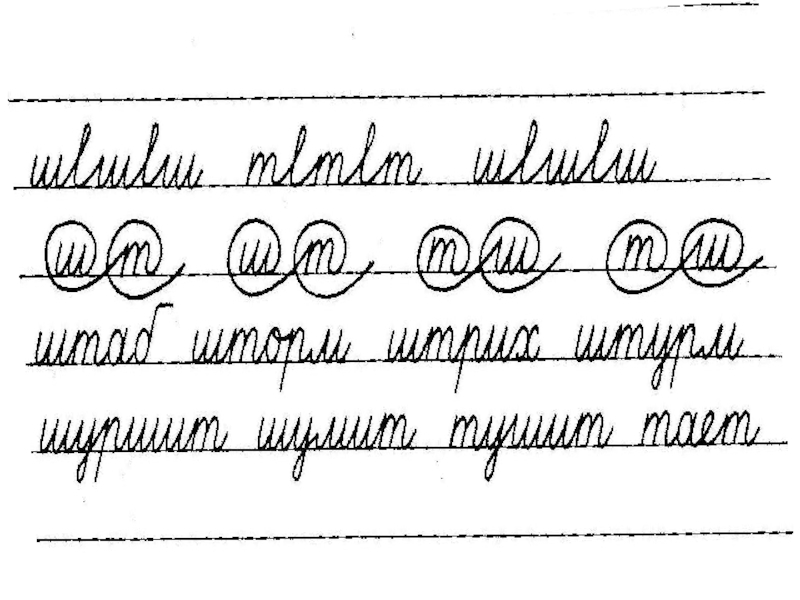 шlшlш тlтlт шlшlш
ш т ш т т ш т ш
штаб шторм штрих штурм
шуршит шумит тушит тает